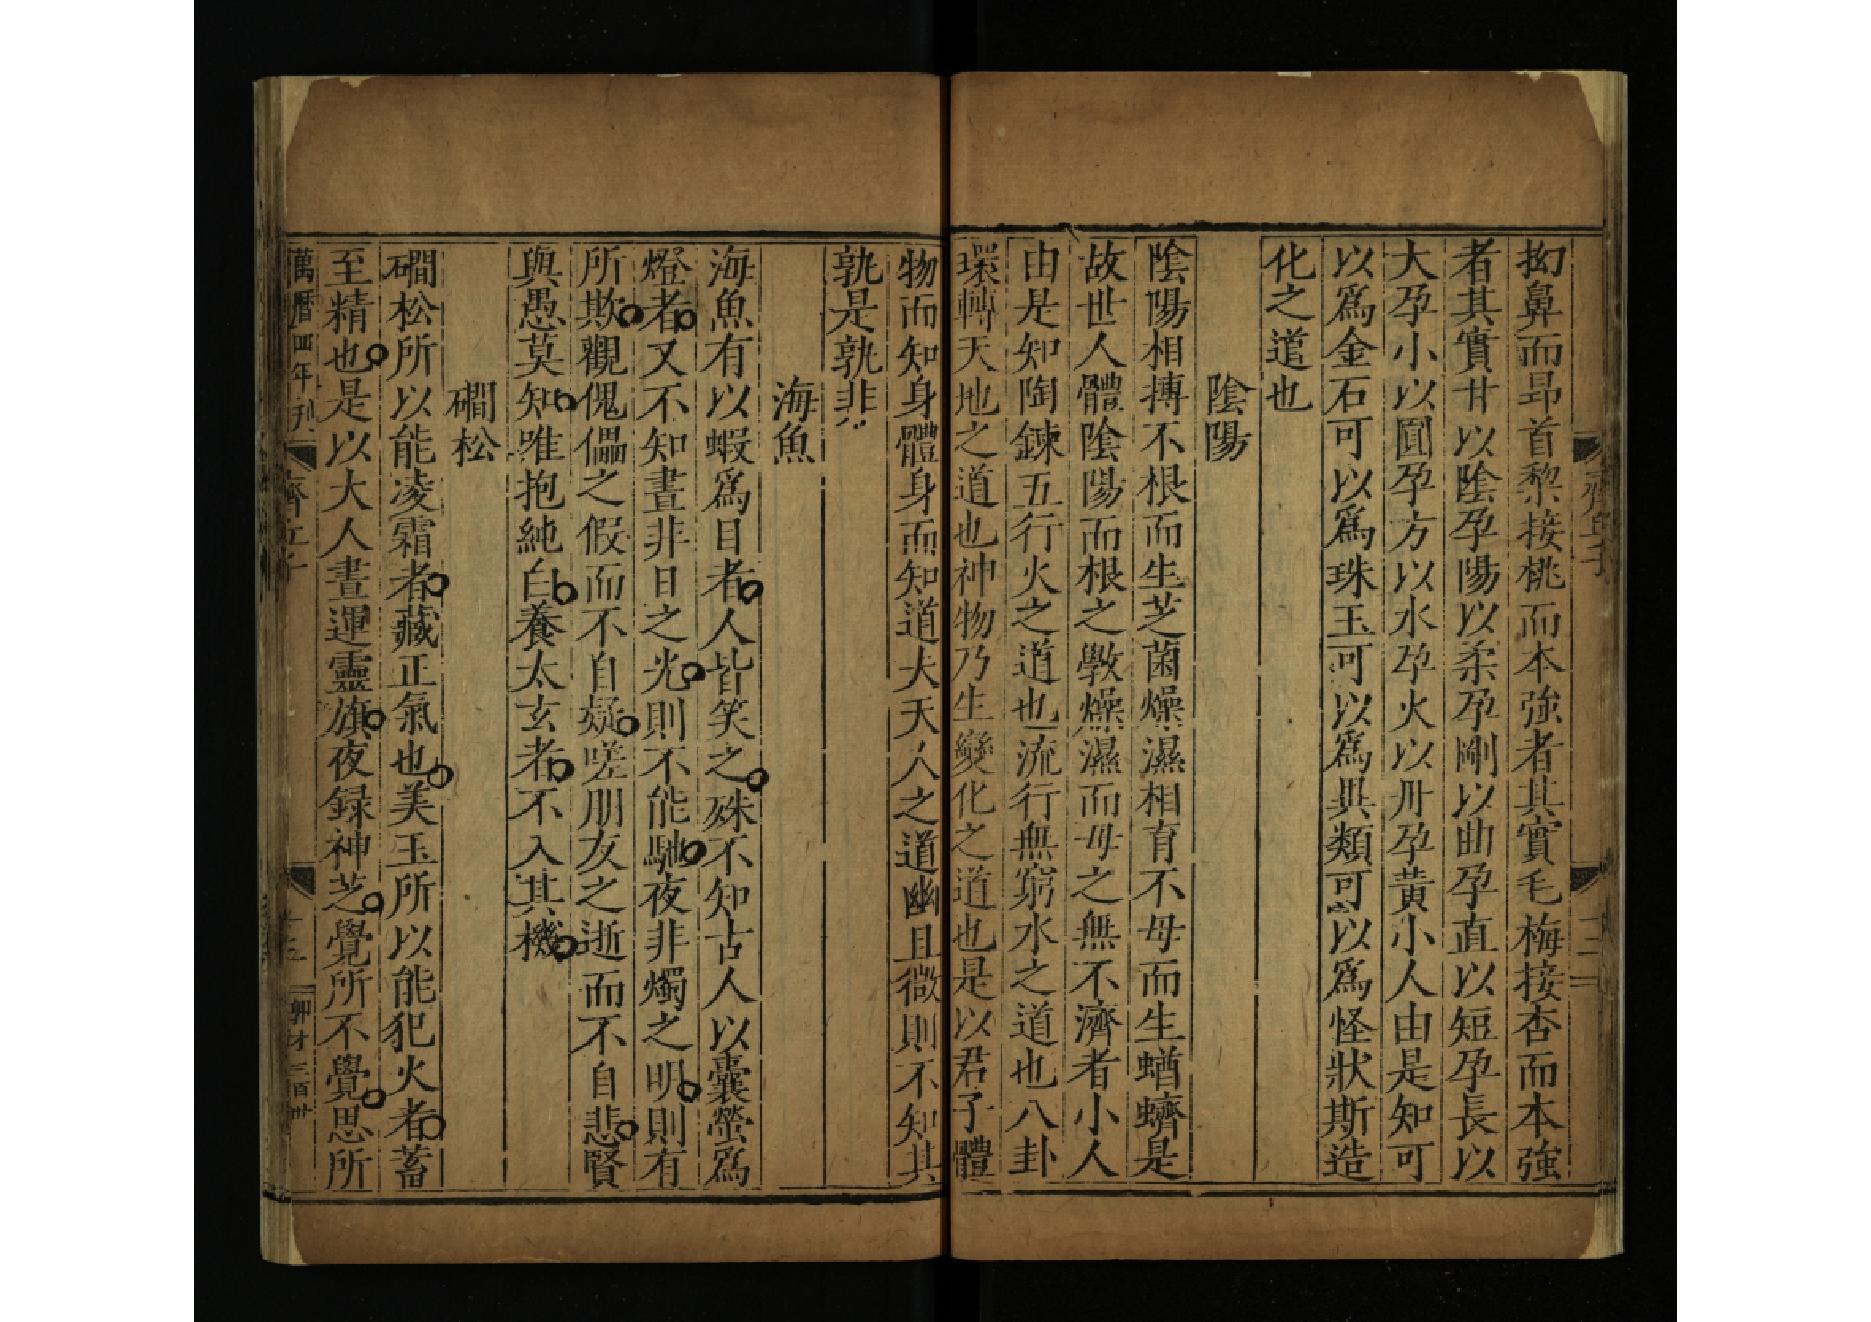 齊丘子
十二
拗鼻而昂首黎接桃而本強者其實毛梅接杏而本強
者其實甘以陰孕陽以柔孕剛以曲孕直以短孕長以
大孕小以圓孕方以水孕火以丹孕黄小人由是知可
以為金石可以為珠玉可以為異類可以為怪狀斯造
化之道也
陰陽
陰陽相摶不根而生芝菌燥濕相育不母而生蝤蠐是
故世人體陰陽而根之斆燥濕而母之無不濟者小人
由是知陶鍊五行火之道也流行無窮水之道也八卦
環轉天地之道也神物乃生變化之道也是以君子體
物而知身體身而知道夫天人之道幽且微則不知其
孰是孰非
海魚
海魚有以蝦為目者人皆笑之殊不知古人以囊螢為
燈者又不知晝非日之光則不能馳夜非燭之明則有
所欺觀傀儡之假而不自疑嗟朋友之逝而不自悲賢
與愚莫知唯抱純白養太玄者不入其機
磵松
磵松所以能凌霜者藏正氣也美玉所以能犯火者蓄
至精也是以大人晝運靈旗夜録神芝覺所不覺思所
萬曆四年刊
齊丘子
十三
三百廿